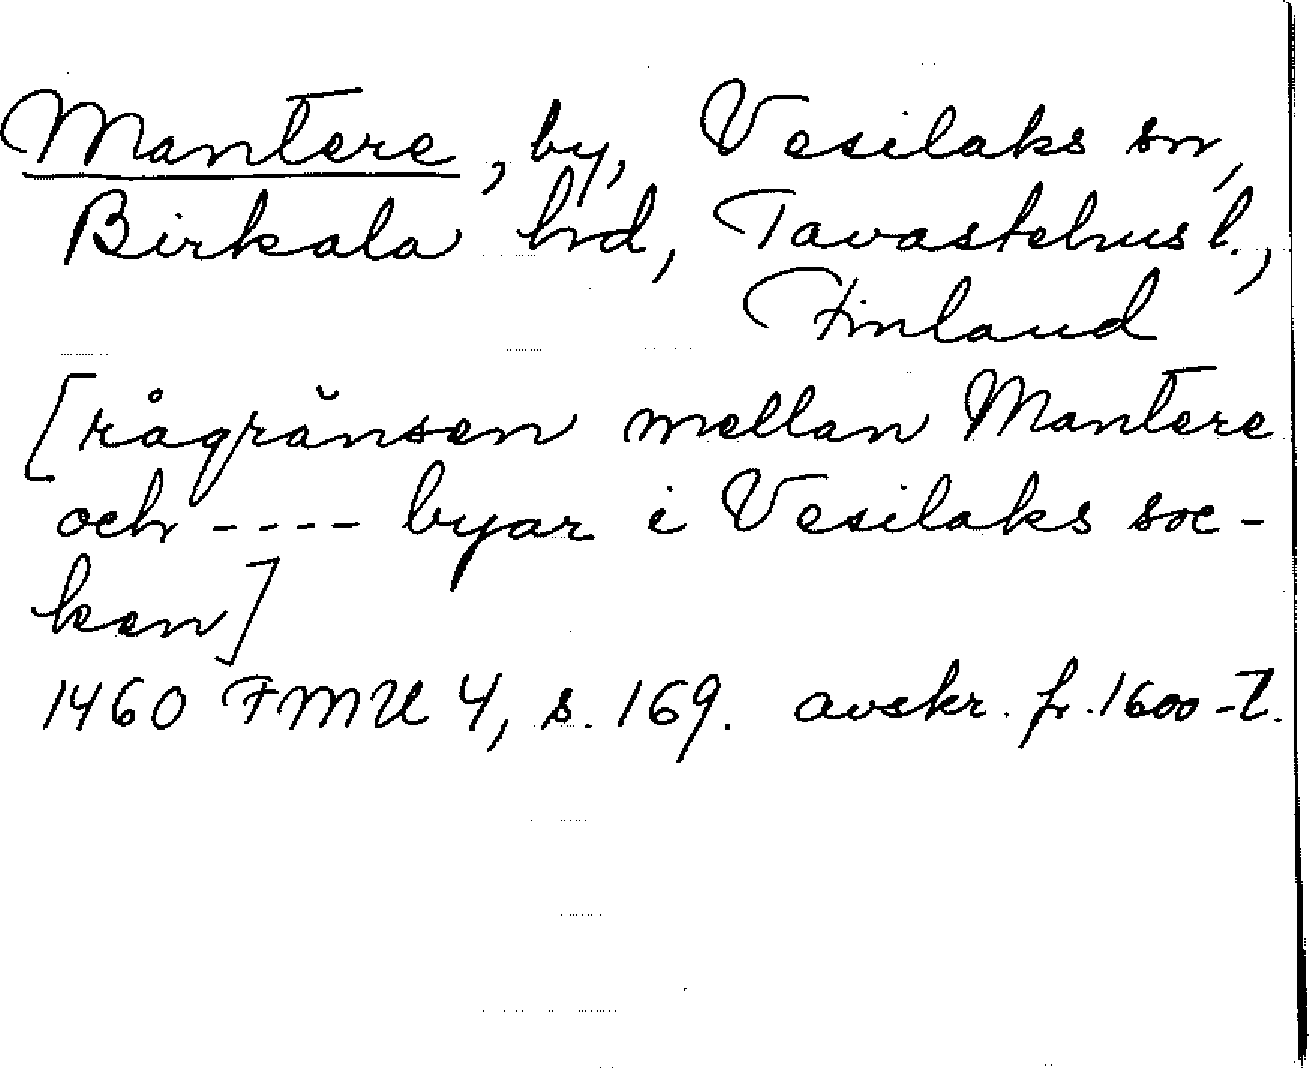 Mantere, by, Vesilaks sn,
Birkala hrd, Tavastehus l.,
Finland
[rågränsen mellan Mantere
och ---- byar i Vesilaks soc-
ken]
1460 FMU 4, s. 169. avskr. fr. 1600-t.